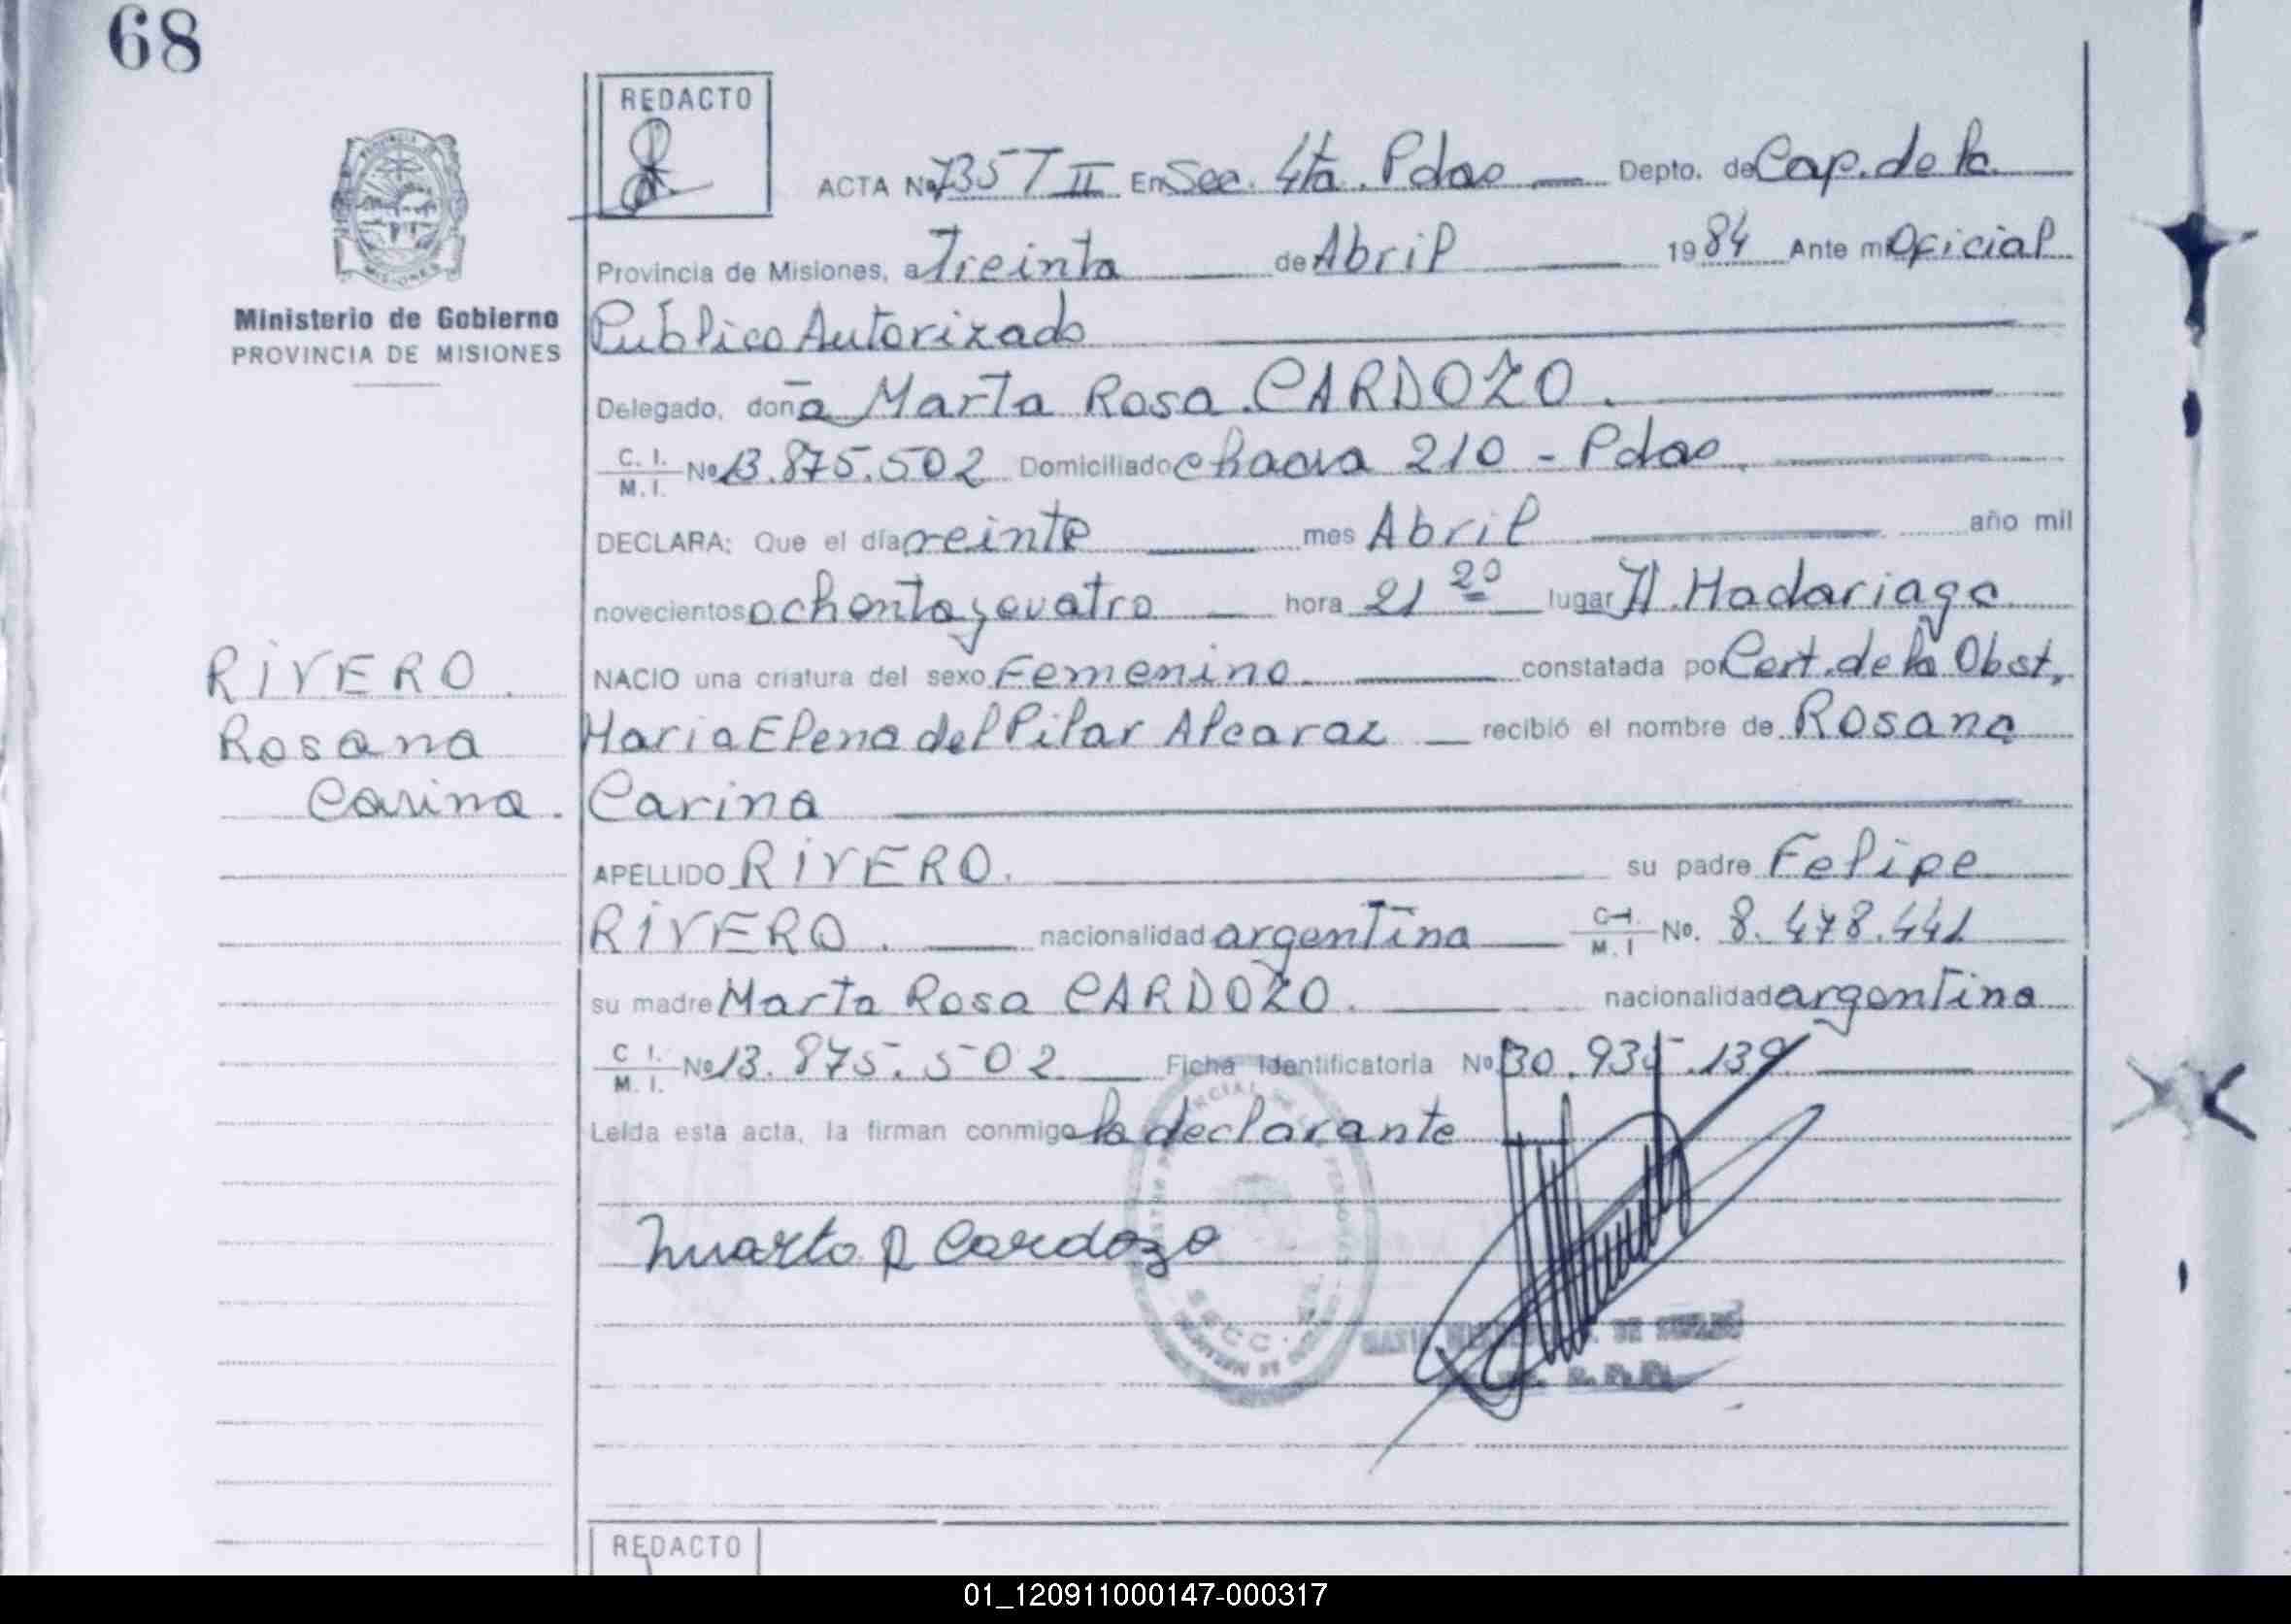 68
REDACTO
ACTA Nº 735 T II En Sec. 4ta. Pdas Depto. de Cap. de la
Provincia de Misiones, a Treinta de Abril 1984 Ante mi Oficial
Ministerio de Gobierno
PROVINCIA DE MISIONES
Público Autorizado
Delegado, doña Marta Rosa CARDOZO.
C. I. M. I. Nº 13.875.502 Domiciliado chacra 210 - Pdas.
DECLARA: Que el día veinte mes Abril año mil
novecientos ochenta y cuatro hora 21 20 lugar H. Madariaga
RIVERO. NACIO una criatura del sexo Femenino. constatada por Cert. de la Obst.
Rosana Maria Elena del Pilar Alcaraz recibió el nombre de Rosana
Carina. Carina
APELLIDO RIVERO. su padre Felipe
RIVERO. nacionalidad argentina C.I. M. I No. 8.478.441
su madre Marta Rosa CARDOZO. nacionalidad argentina
C I. M. I. Nº 13.875.502 Ficha Identificatoria Nº 30.935.139
Leída esta acta, la firman conmigo la declarante
Marta R Cardozo
REDACTO
01_120911000147-000317